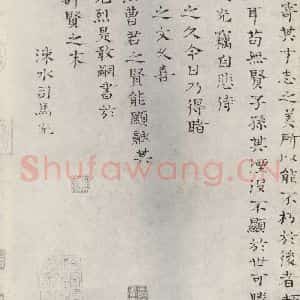 寄其才志之美所以能不朽於後者
耳苟無賢子孫其湮沒不顯於世可勝
光竊自悲待
之久今日乃得睹
之文又喜
曹君之賢能顯融其
烈是敢嗣書於
群賢之末
涑水司馬光
Shufawang.CN